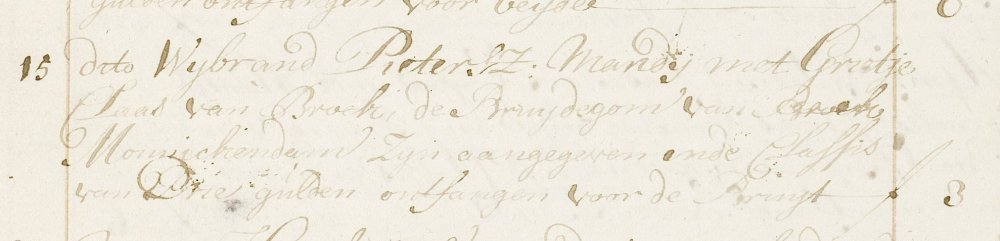 gulden ontfangen voor beyde 6
15 dito Wybrand Pieter SZ: Mandy met Grietje
Claas van Broek, de Bruydegom van
Monnickendam zyn aangegeven inde Classis
van Drie gulden ontfangen voor de Bruyt f 3